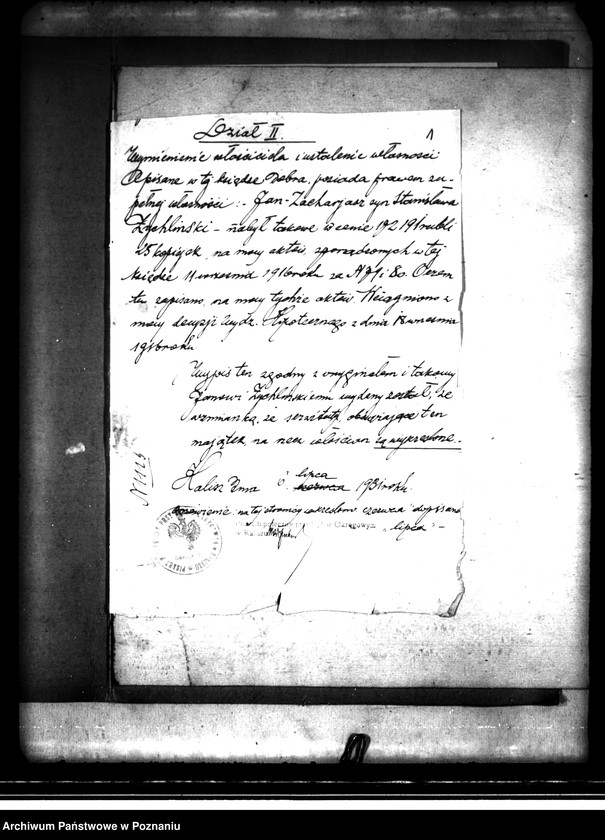 Dział II.
1
Wymienienie właściciela i ustalenie własności
Opisane w tej księdze Dobra, posiada prawem zu-
pełnej własności: - Jan-Zacharjasz syn Stanisława
Żychliński - nabył takowe w cenie 192 191 rubli
25 kopiejek, na mocy aktów, sporządzonych w tej
księdze 11 września 1916 roku za N 79 i 80. O czem
tu zapisano, na mocy tychże aktów. Wciągnięto z
mocy decyzji Wydz. Hipotecznego z dnia 18 września
1916 roku.
Wypis ten zgodny z oryginałem i takowy
Janowi Żychlińskiemu wydany został, ze
wzmianką, że serwituty, obciążające ten
majątek, na rzecz włościan są wykreślone.
Kalisz Dnia 6 lipca
czerwca 1931 roku.
na tej stronicy wykreślono "czerwca" dopisano
"lipca" -
Okręgowym
w Kaliszu